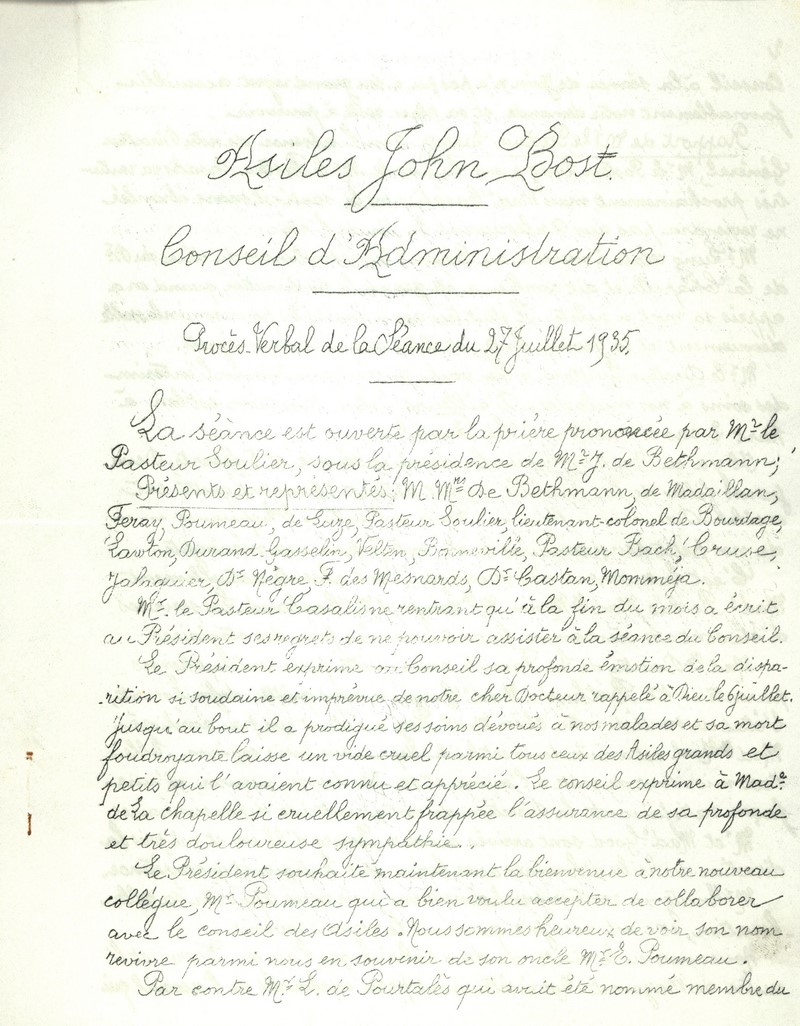 Asiles John Bost.
Conseil d'Administration
Procès-Verbal de la Séance du 27 Juillet 1935.
La séance est ouverte par la prière prononcée par Mr le
Pasteur Soulier, sous la présidence de Mr J. de Bethmann;
Présents et représentés: M. Mrs De Bethmann, de Madaillan,
Feray, Poumeau, de Luze, Pasteur Soulier, lieutenant-colonel de Bourdage,
Lawton, Durand-Gasselin, Velten, Bonneville, Pasteur Bach, Cruse,
Jalaguier, Dr Nègre, F. des Mesnards, Dr Castan, Momméja.
Mr. le Pasteur Casalis ne rentrant qu'à la fin du mois a écrit
au Président ses regrets de ne pouvoir assister à la séance du Conseil.
Le Président exprime au Conseil sa profonde émotion de la dispa-
-rition si soudaine et imprévue de notre cher Docteur rappelé à Dieu le 6 juillet.
Jusqu'au bout il a prodigué ses soins dévoués à nos malades et sa mort
foudroyante laisse un vide cruel parmi tous ceux des Asiles grands et
petits qui l'avaient connu et apprécié. Le conseil exprime à Made
de La Chapelle si cruellement frappée l'assurance de sa profonde
et très douloureuse sympathie.
Le Président souhaite maintenant la bienvenue à notre nouveau
collégue, Mr Poumeau qui a bien voulu accepter de collaborer
avec le conseil des Asiles. Nous sommes heureux de voir son nom
revivre parmi nous en souvenir de son oncle Mr E. Poumeau.
Par contre Mr. L. de Pourtalès qui avait été nommé membre du